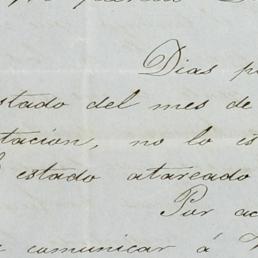 Dias
estado del mes de
tacion, no lo es
estado atareado
Por ac
comunicar á